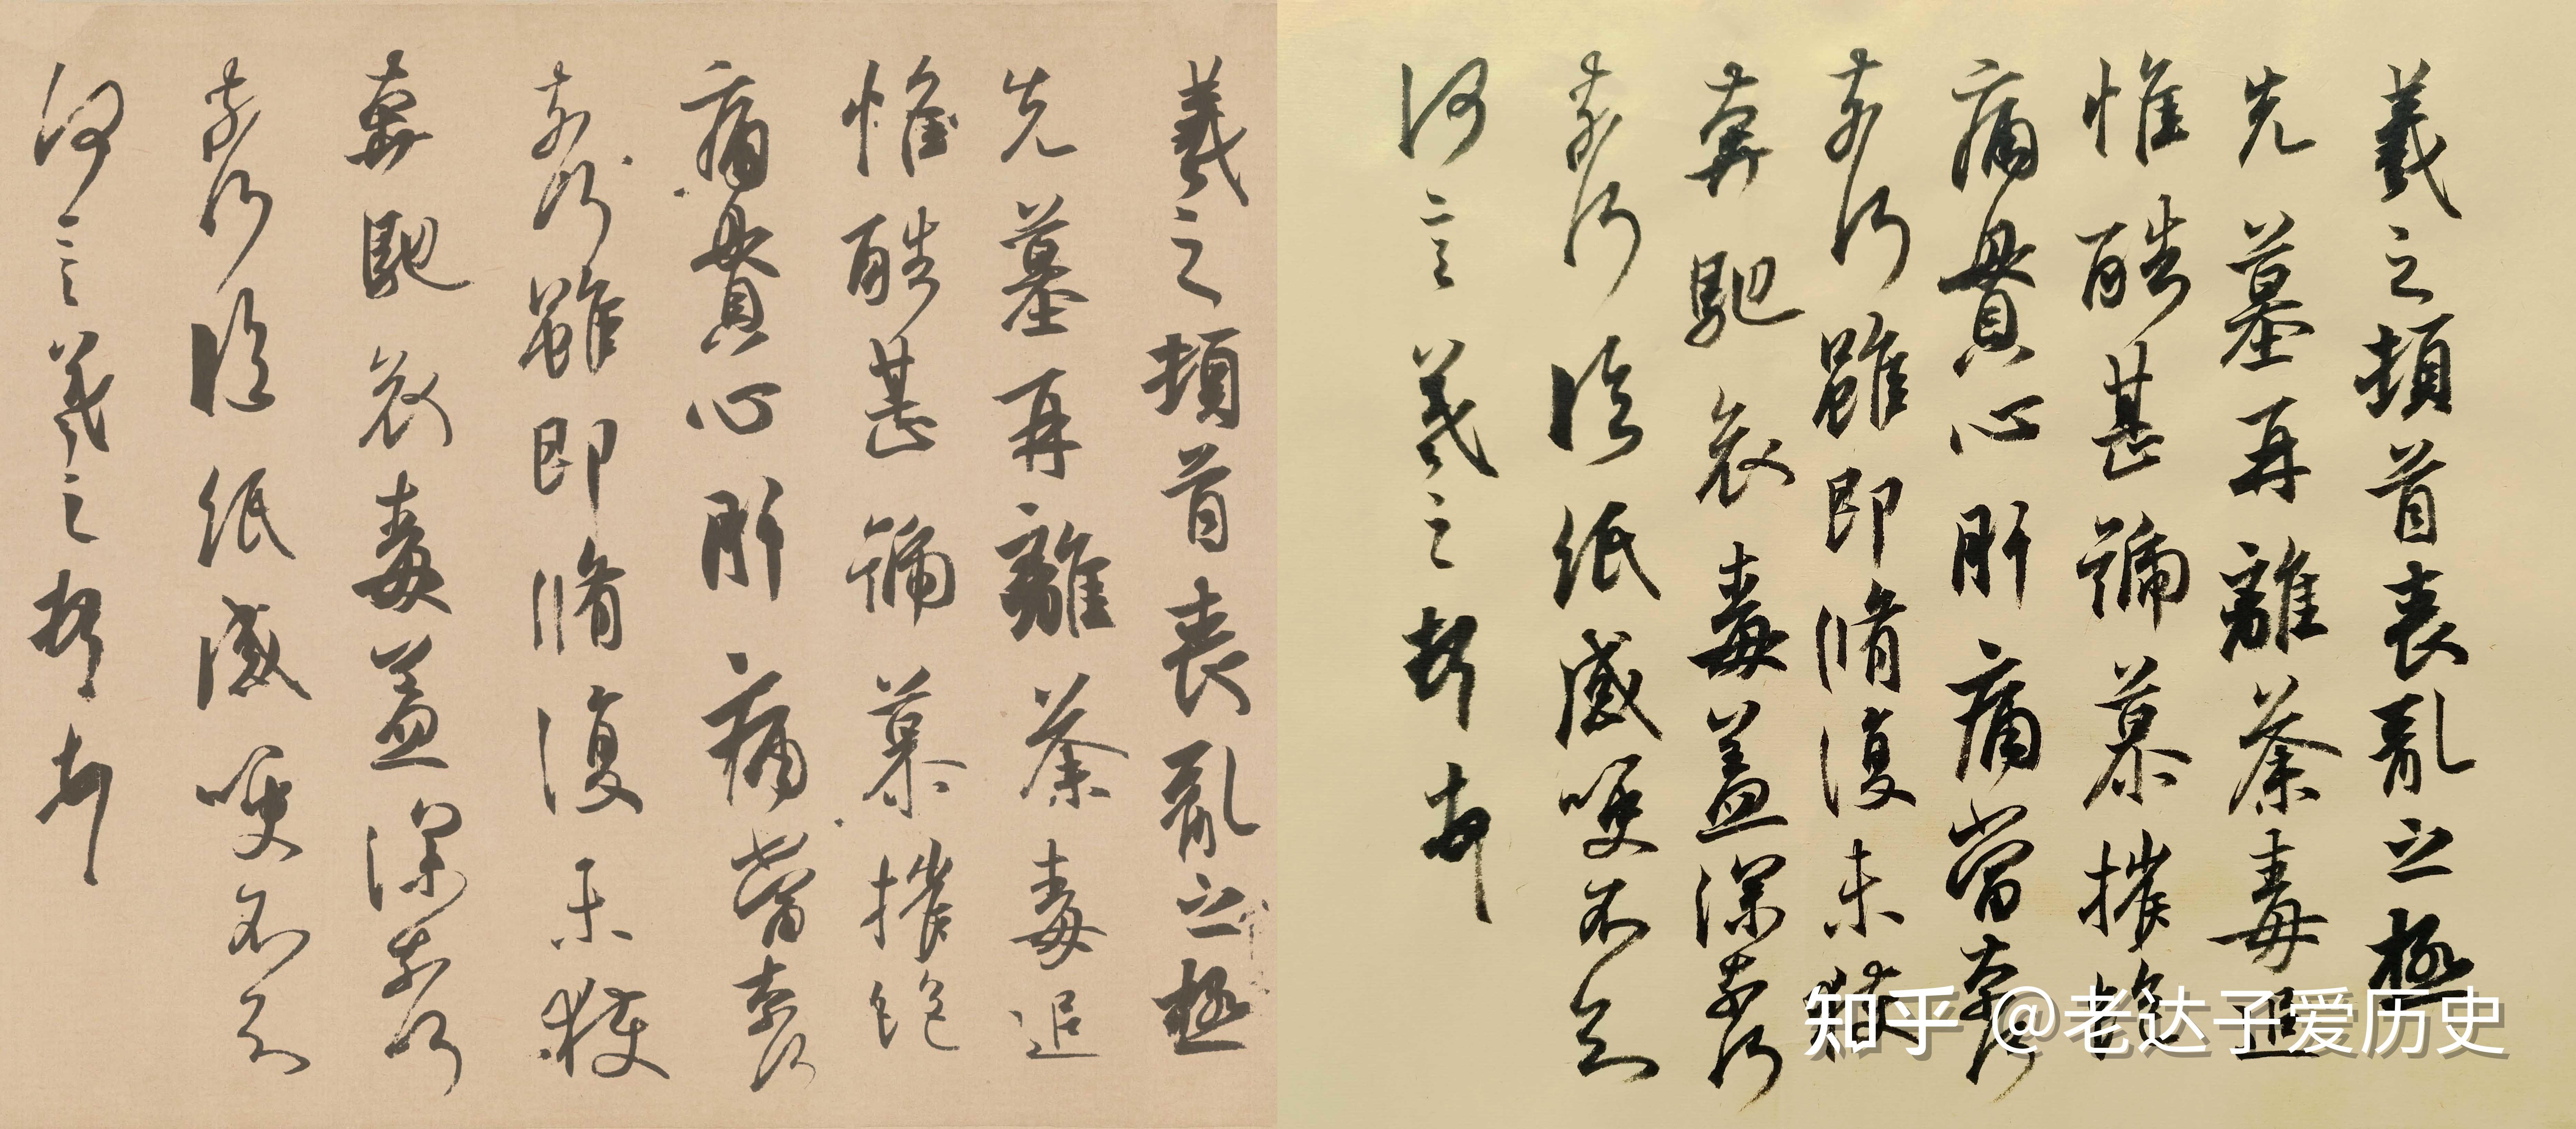 羲之頓首喪亂之極
先墓再離荼毒追
惟酷甚號慕摧絶
痛貫心肝痛當奈何
奈何雖即脩復未獲
奔馳哀毒益深奈何
奈何臨紙感哽不知
何言羲之頓首
羲之頓首喪亂之極
先墓再離荼毒追
惟酷甚號慕摧絶
痛貫心肝痛當奈何
奈何雖即脩復未獲
奔馳哀毒益深奈何
奈何臨紙感哽不知
何言羲之頓首
知乎 @老达子爱历史